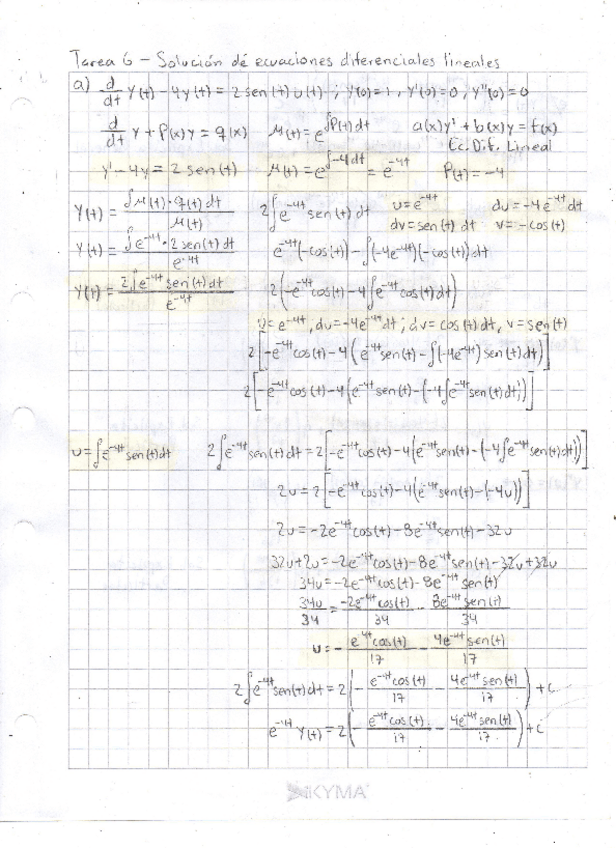 Tarea 6 - Solución de ecuaciones diferenciales lineales
a) d/dt y(t) - 4y(t) = 2 sen(t) u(t) ; y(0)=1, y'(0)=0, y''(0)=0
d/dt y + p(x) y = q(x) μ(t) = e^∫p(t)dt a(x)y' + b(x)y = f(x)
Ec. Dif. Lineal
y' - 4y = 2 sen(t) μ(t) = e^∫-4dt = e^-4t P(t) = -4
y(t) = ∫μ(t)·q(t)dt / μ(t) 2∫e^-4t sen(t) dt u = e^-4t du = -4e^-4t dt
dv = sen(t) dt v = -cos(t)
y(t) = ∫e^-4t · 2 sen(t) dt / e^-4t e^-4t(-cos(t)) - ∫(-4e^-4t)(-cos(t))dt
y(t) = 2∫e^-4t sen(t) dt / e^-4t 2(-e^-4t cos(t) - 4∫e^-4t cos(t)dt)
u = e^-4t, du = -4e^-4t dt ; dv = cos(t) dt, v = sen(t)
2[-e^-4t cos(t) - 4(e^-4t sen(t) - ∫(-4e^-4t) sen(t) dt)]
2[-e^-4t cos(t) - 4(e^-4t sen(t) - (-4∫e^-4t sen(t) dt))]
u = ∫e^-4t sen(t) dt 2∫e^-4t sen(t) dt = 2[-e^-4t cos(t) - 4(e^-4t sen(t) - (-4∫e^-4t sen(t) dt))]
2u = 2[-e^-4t cos(t) - 4(e^-4t sen(t) - (-4u))]
2u = -2e^-4t cos(t) - 8e^-4t sen(t) - 32u
32u + 2u = -2e^-4t cos(t) - 8e^-4t sen(t) - 32u + 32u
34u = -2e^-4t cos(t) - 8e^-4t sen(t)
34u/34 = -2e^-4t cos(t)/34 - 8e^-4t sen(t)/34
u = - e^4t cos(t)/17 - 4e^-4t sen(t)/17
2∫e^-4t sen(t) dt = 2(- e^-4t cos(t)/17 - 4e^-4t sen(t)/17) + C
e^-4t y(t) = 2(- e^-4t cos(t)/17 - 4e^-4t sen(t)/17) + C
KYMA